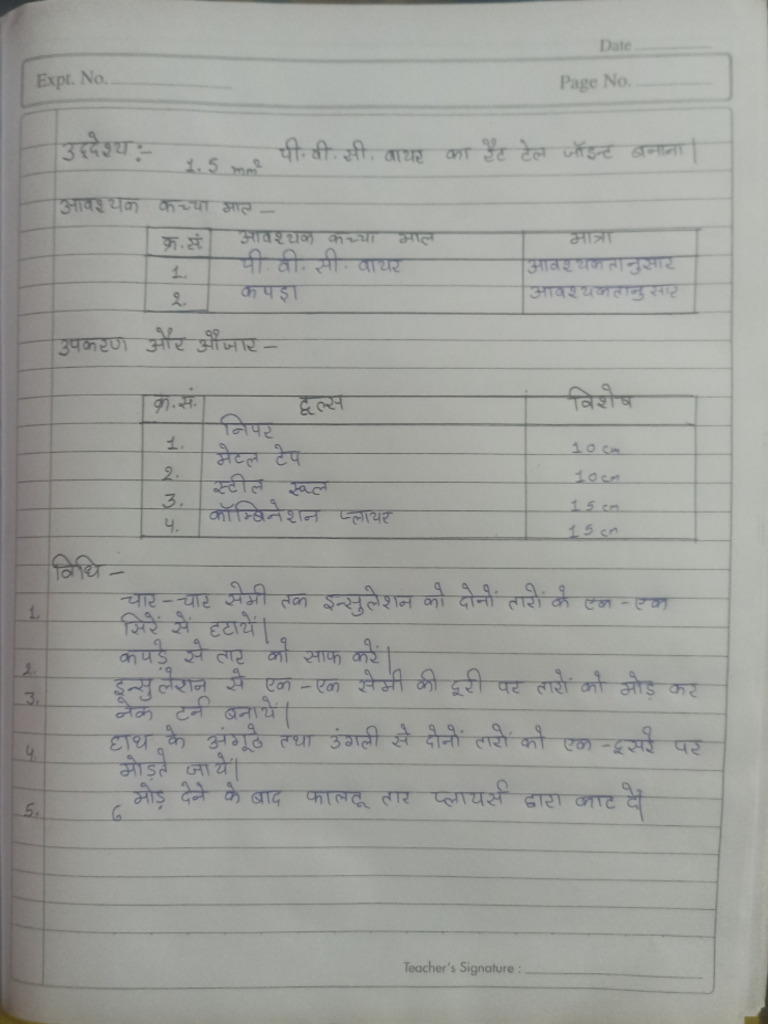 Date
Expt. No. Page No.
उद्देश्य :- 1.5 mm² पी.वी.सी. वायर का रैट टेल जॉइन्ट बनाना।
आवश्यक कच्चा माल –
क्र.सं आवश्यक कच्चा माल मात्रा
1. पी.वी.सी. वायर आवश्यकतानुसार
2. कपड़ा आवश्यकतानुसार
उपकरण और औजार –
क्र.सं. टूल्स विशेष
1. निपर 10 cm
2. मेटल टेप 10 cm
3. स्टील रूल 15 cm
4. कॉम्बिनेशन प्लायर 15 cm
विधि –
1. चार-चार सेमी तक इन्सुलेशन को दोनों तारों के एक-एक
सिरें सें हटायें।
2. कपड़े से तार को साफ करें।
3. इन्सुलेशन से एक-एक सेमी की दूरी पर तारों को मोड़ कर
नेक टर्न बनायें।
4. हाथ के अंगूठे तथा उंगली से दोनों तारों को एक-दूसरे पर
मोड़ते जायें।
5. 6 मोड़ देने के बाद फालतू तार प्लायर्स द्वारा काट दें।
Teacher's Signature :